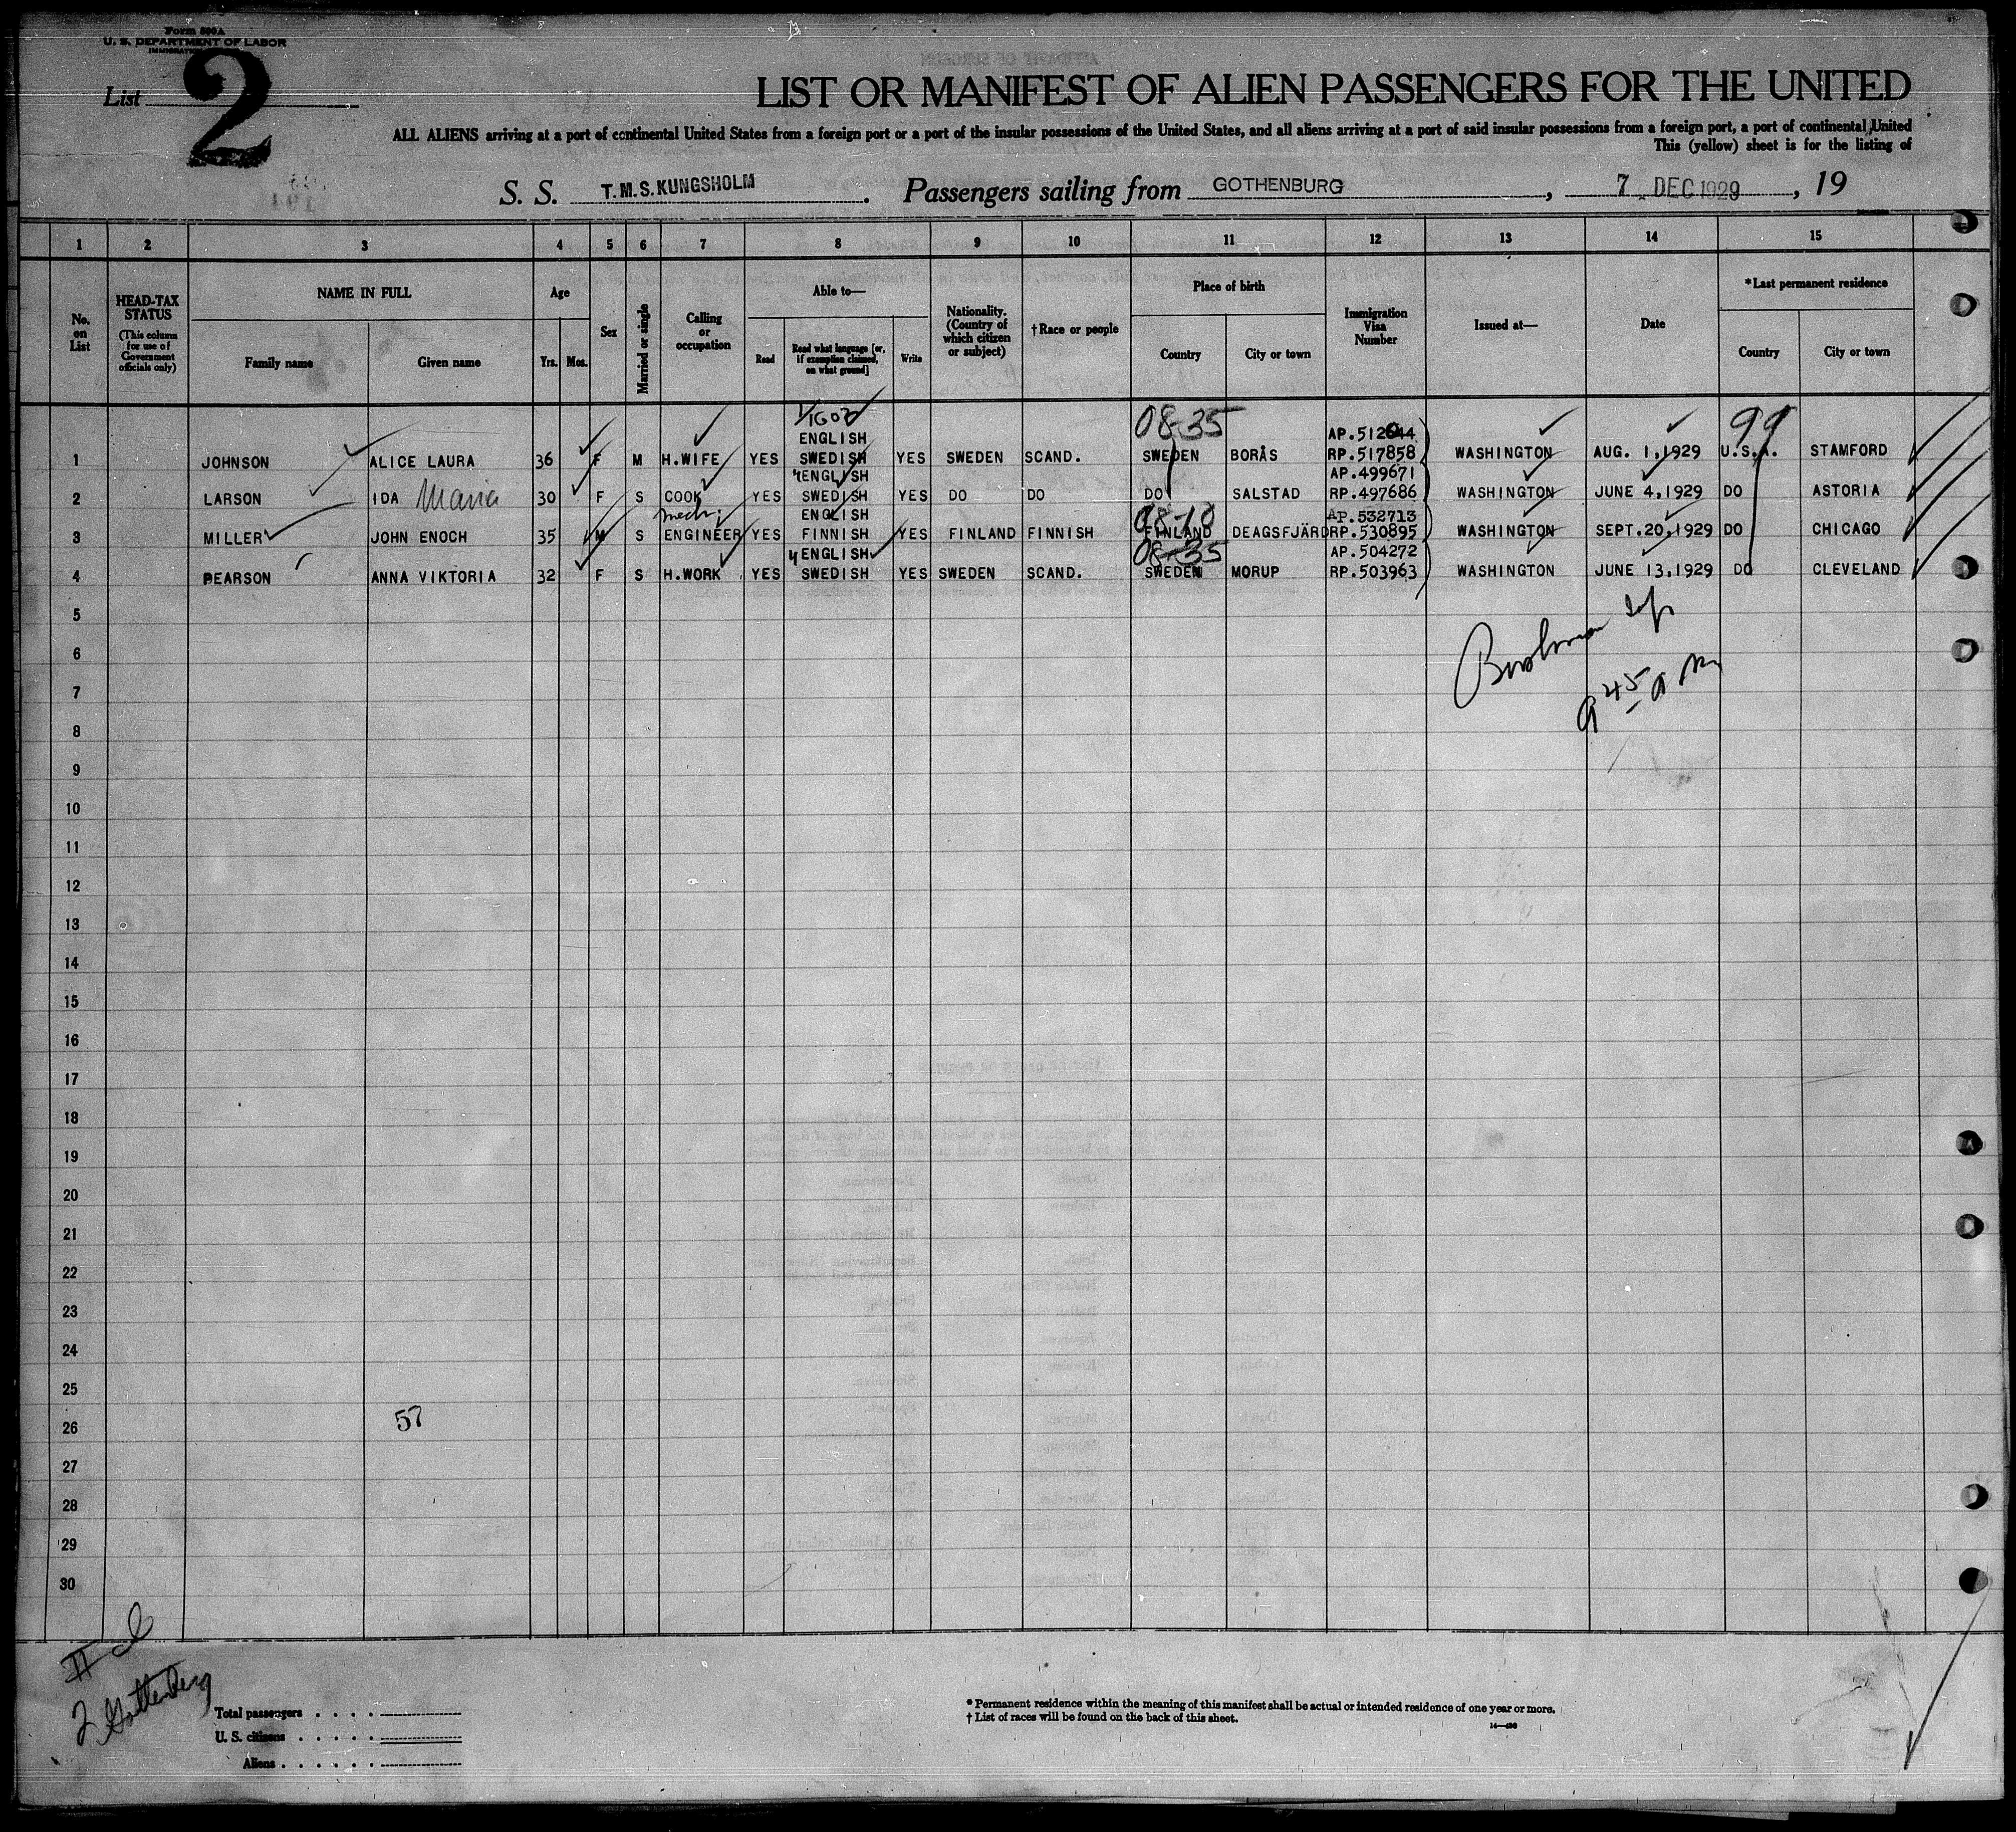 Form 500A
U. S. DEPARTMENT OF LABOR
List 2
LIST OR MANIFEST OF ALIEN PASSENGERS FOR THE UNITED
ALL ALIENS arriving at a port of continental United States from a foreign port or a port of the insular possessions of the United States, and all aliens arriving at a port of said insular possessions from a foreign port, a port of continental United
This (yellow) sheet is for the listing of
S. S. T.M.S.KUNGSHOLM. Passengers sailing from GOTHENBURG, 7 DEC 1929, 19
1 2 3 4 5 6 7 8 9 10 11 12 13 14 15
No. on List
HEAD-TAX STATUS (This column for use of Government officials only)
NAME IN FULL
Family name Given name
Age
Yrs. Mos.
Sex
Married or single
Calling or occupation
Able to—
Read Read what language [or, if exemption claimed, on what ground] Write
Nationality. (Country of which citizen or subject)
† Race or people
Place of birth
Country City or town
Immigration Visa Number
Issued at—
Date
* Last permanent residence
Country City or town
08-35 99
ENGLISH AP.512644
1 JOHNSON ALICE LAURA 36 F M H.WIFE YES SWEDISH YES SWEDEN SCAND. SWEDEN BORÅS RP.517858 WASHINGTON AUG. 1,1929 U.S.A. STAMFORD
ENGLISH AP.499671
2 LARSON IDA Maria 30 F S COOK YES SWEDISH YES DO DO DO SALSTAD RP.497686 WASHINGTON JUNE 4,1929 DO ASTORIA
mech. ENGLISH 08-10 AP.532713
3 MILLER JOHN ENOCH 35 M S ENGINEER YES FINNISH YES FINLAND FINNISH FINLAND DEAGSFJÄRD RP.530895 WASHINGTON SEPT.20,1929 DO CHICAGO
ENGLISH 08-35 AP.504272
4 PEARSON ANNA VIKTORIA 32 F S H.WORK YES SWEDISH YES SWEDEN SCAND. SWEDEN MORUP RP.503963 WASHINGTON JUNE 13,1929 DO CLEVELAND
5
6
7
9 45 a m
8
9
10
11
12
13
14
15
16
17
18
19
20
21
22
23
24
25
57
26
27
28
29
30
II cl
2 Gothenburg
Total passengers
U. S. citizens
Aliens
* Permanent residence within the meaning of this manifest shall be actual or intended residence of one year or more.
† List of races will be found on the back of this sheet.